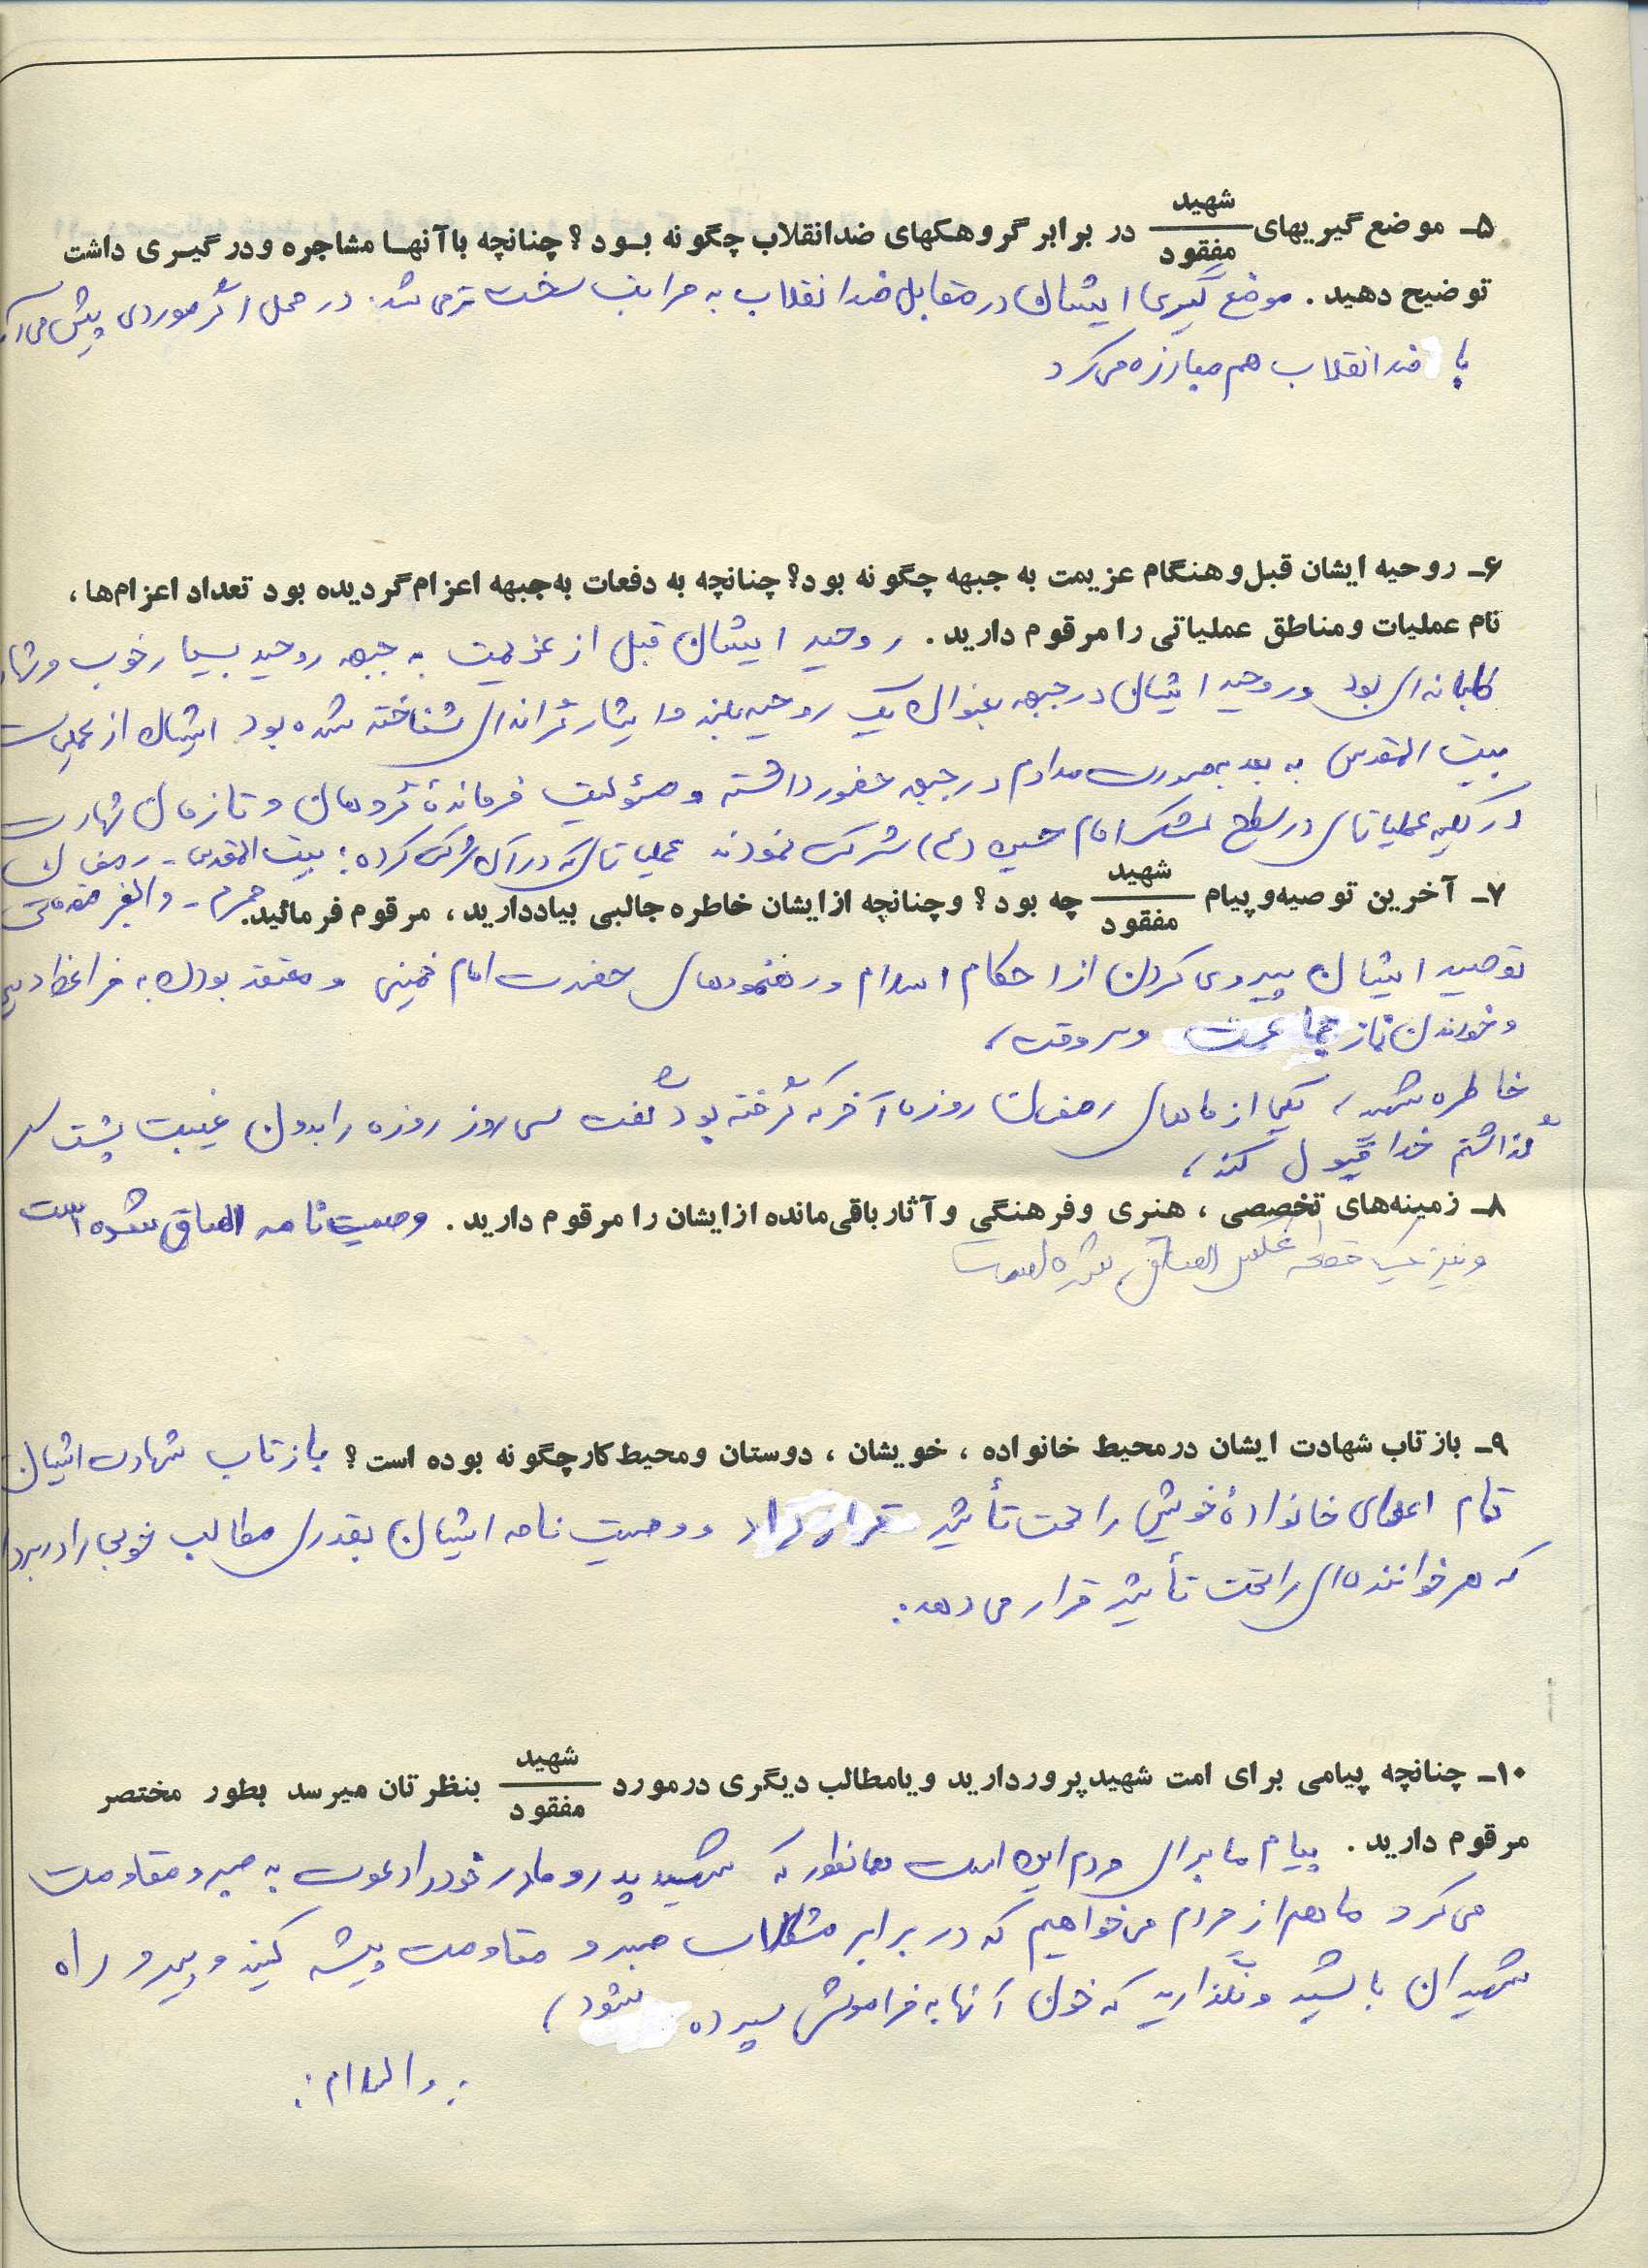 ۵ـ موضع گیریهای شهید / مفقود در برابر گروهکهای ضدانقلاب چگونه بود ؟ چنانچه باآنها مشاجره ودرگیری داشت
توضیح دهید . موضع گیری ایشان در مقابل ضد انقلاب به مراتب سخت تر می شد. در محل اگر موردی پیش می آ
با ضد انقلاب هم مبارزه می کرد
۶ـ روحیه ایشان قبل و هنگام عزیمت به جبهه چگونه بود؟ چنانچه به دفعات به جبهه اعزام گردیده بود تعداد اعزام‌ها ،
نام عملیات و مناطق عملیاتی را مرقوم دارید . روحیه ایشان قبل از عزیمت به جبهه روحیه بسیار خوب و شها
طلبانه‌ای بود و روحیه ایشان در جبهه بعنوان یک روحیه بلند و ایثارگرانه‌ای شناخته شده بود ایشان از عملیات
بیت المقدس به بعد بصورت مداوم در جبهه حضور داشته و مسؤلیت فرماندهٔ گروهان و تا زمان شهادت
در کلیه عملیاتای در سطح لشکر امام حسین (ع) شرکت نمودند عملیاتای که در آن شرکت کرده : بیت المقدس - رمضان
محرم - والفجر مقدماتی
۷ـ آخرین توصیه و پیام شهید / مفقود چه بود ؟ و چنانچه از ایشان خاطره جالبی بیاد دارید ، مرقوم فرمائید.
توصیه ایشان پیروی کردن از احکام اسلام و رهنمودهای حضرت امام خمینی و معتقد بودن به فرا
و خواندن نماز جماعت و سر وقت ،
خاطره شهید ، یکی از ماه‌های رمضان روزه آخر که گرفته بود گفت سی روز روزه را بدون غیبت پشت سر
گذاشتم خدا قبول کند ،
۸ـ زمینه‌های تخصصی ، هنری و فرهنگی و آثار باقی‌مانده از ایشان را مرقوم دارید . وصیت نامه الصاق شده است
و نیز یک قطعه عکس الصاق شده است
۹ـ بازتاب شهادت ایشان در محیط خانواده ، خویشان ، دوستان و محیط کار چگونه بوده است ؟ بازتاب شهادت ایشان
تمام اعضای خانوادهٔ خویش را تحت تأثیر قرار داد و وصیت نامه ایشان بقدری مطالب خوبی را در بردا
که هر خواننده‌ای را تحت تأثیر قرار می دهد .
۱۰ـ چنانچه پیامی برای امت شهید پرور دارید و یا مطالب دیگری در مورد شهید / مفقود بنظرتان میرسد بطور مختصر
مرقوم دارید . پیام ما برای مردم این است همانطور که شهید پدر و مادر خود را دعوت به صبر و مقاومت
می کرد ما هم از مردم می خواهیم که در برابر مشکلات صبر و مقاومت پیشه کنید و پیرو راه
شهیدان باشید و نگذارید که خون آنها به فراموشی سپرده شود ،
والسلام